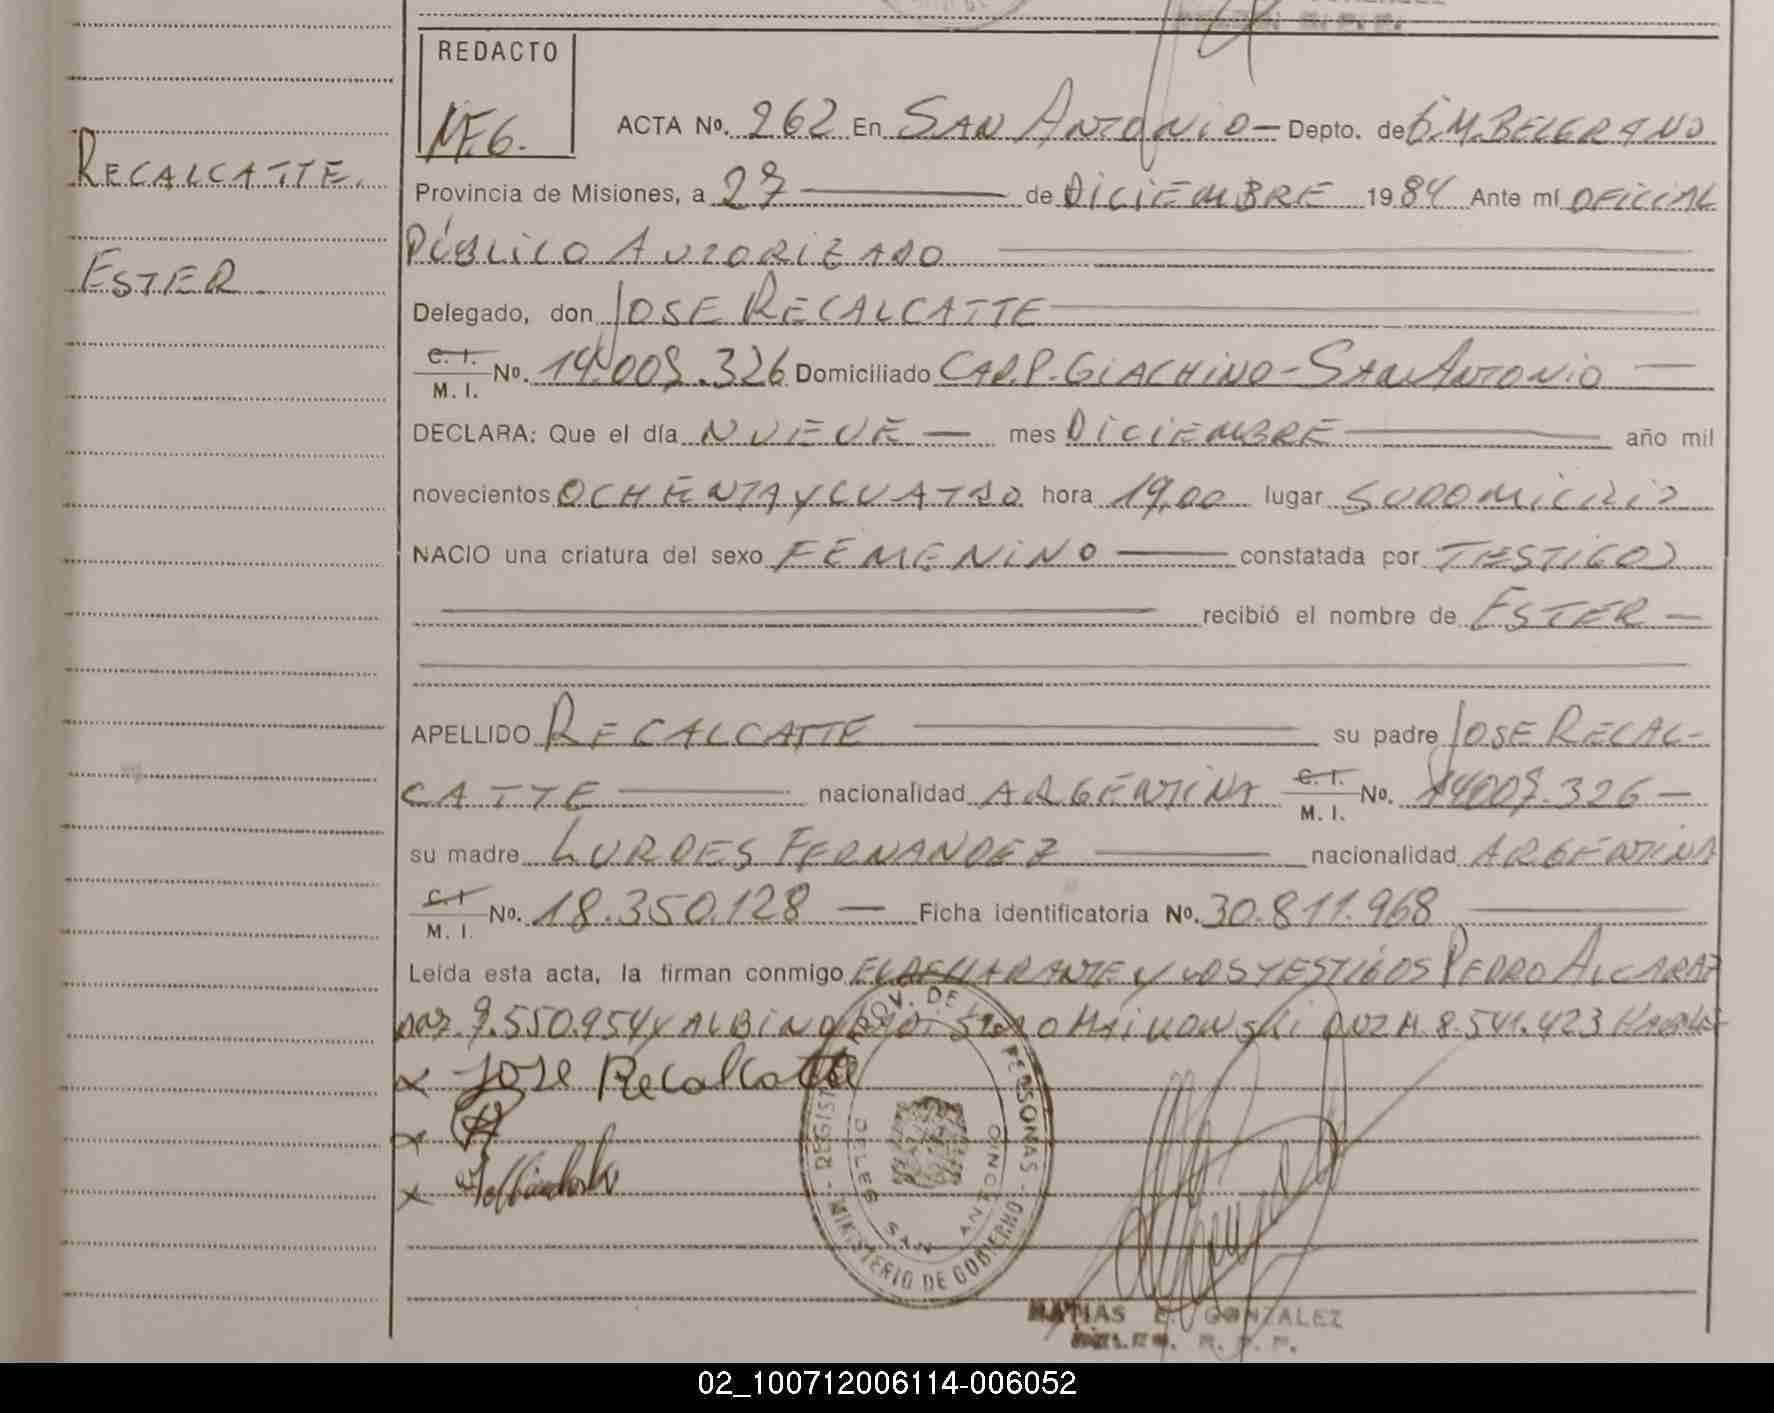 REDACTO
ACTA Nº. 262 En SAN ANTONIO — Depto. de G.M. BELGRANO
RECALCATTE.
Provincia de Misiones, a 27 — de DICIEMBRE 1984 Ante mí OFICIAL
PÚBLICO AUTORIZADO
ESTER
Delegado, don JOSE RECALCATTE
C. I.
M. I. Nº. 14.009.326 Domiciliado CAP. P. GIACHINO - SAN ANTONIO —
DECLARA: Que el día NUEVE — mes DICIEMBRE — año mil
novecientos OCHENTA Y CUATRO hora 19,00 lugar SU DOMICILIO
NACIO una criatura del sexo FEMENINO — constatada por TESTIGOS
recibió el nombre de ESTER —
APELLIDO RECALCATTE — su padre JOSE RECAL-
CATTE — nacionalidad ARGENTINA C. I. M. I. Nº. 14009.326 —
su madre LURDES FERNANDEZ — nacionalidad ARGENTINA
C. I.
M. I. Nº. 18.350.128 — Ficha identificatoria Nº. 30.811.968
Leída esta acta, la firman conmigo EL DECLARANTE Y LOS TESTIGOS PEDRO ALCARAZ
9.550.954 y ALBINO 8.541.423
x Jose Recalcatte
x
x
REGIST PROV. DE LAS PERSONAS - MINISTERIO DE GOBIERNO -
SAN ANTONIO
MATIAS E. GONZALEZ
R. P. P.
02_100712006114-006052